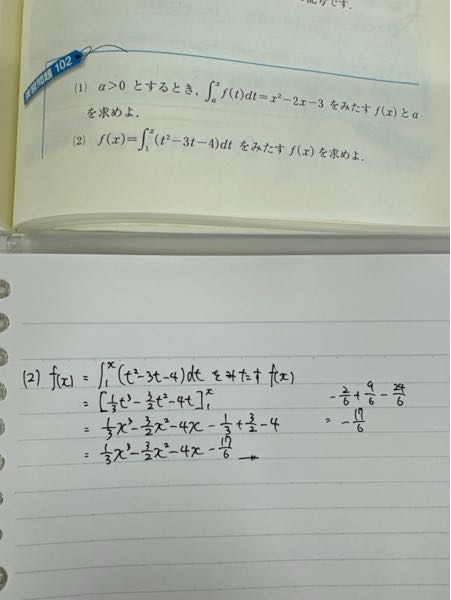 の記号です.
演習問題 102
(1) a>0 とするとき, ∫ₐˣ f(t)dt=x²−2x−3 をみたす f(x) と a
を求めよ.
(2) f(x)=∫₁ˣ (t²−3t−4)dt をみたす f(x) を求めよ.
(2) f(x) = ∫₁ˣ (t²−3t−4)dt をみたす f(x)
= [1/3 t³ − 3/2 t² − 4t]₁ˣ
= 1/3 x³ − 3/2 x² − 4x − 1/3 + 3/2 − 4
= 1/3 x³ − 3/2 x² − 4x − 17/6
− 2/6 + 9/6 − 24/6
= − 17/6